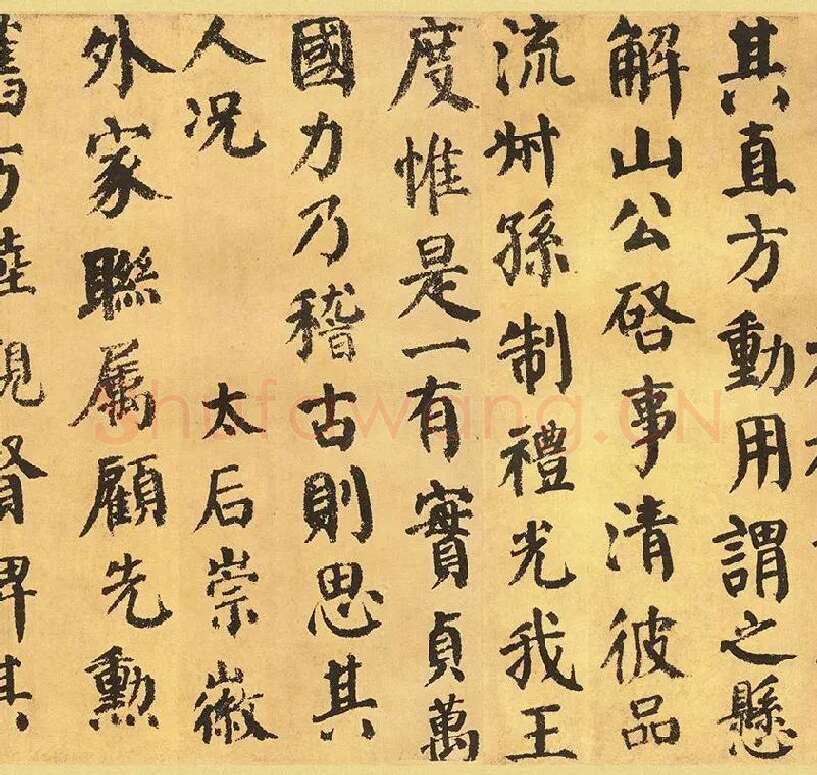 其直方動用謂之懸
解山公啓事清彼品
流叔孫制禮光我王
度惟是一有實貞萬
國力乃稽古則思其
人況 太后崇徽
外家聯屬顧先勳
舊方睦親賢俾其
Shufawang.CN